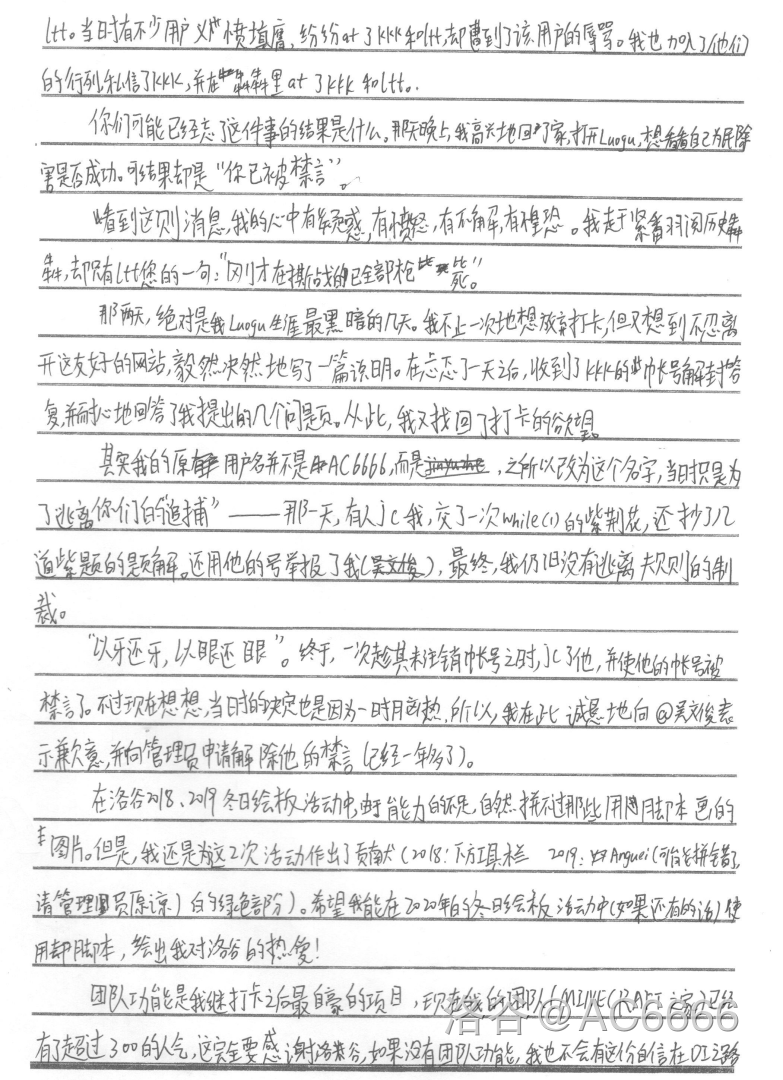 ltt。当时有不少用户义愤填膺,纷纷at了kkk和ltt,却遭到了该用户的辱骂。我也加入了他们
的行列,私信了kkk,并在犇犇里at了kkk和ltt。
你们可能已经忘了这件事的结果是什么。那天晚上,我高兴地回了家,打开Luogu,想看看自己为民除
害是否成功。可结果却是“你已被禁言”。
看到这则消息,我的心中有疑惑,有愤怒,有不解,有惶恐。我赶紧翻阅历史犇
犇,却只有ltt您的一句:“刚才在撕战的已全部枪毙。”
那两天,绝对是我Luogu生涯最黑暗的几天。我不止一次地想放弃打卡,但又想到不忍离
开这友好的网站,毅然决然地写了一篇说明。在忐忑了一天之后,收到了kkk的帐号解封答
复,并耐心地回答了我提出的几个问题。从此,我又找回了打卡的欲望。
其实我的原用户名并不是AC6666,而是,之所以改为这个名字,当时只是为
了逃离你们的“追捕”——那一天,有人jc我,交了一次while(1)的紫荆花,还抄了几
道紫题的题解。还用他的号举报了我(吴文俊),最终,我仍旧没有逃离规则的制
裁。
“以牙还牙,以眼还眼”。终于,一次趁其未注销帐号之时,jc了他,并使他的帐号被
禁言了。不过现在想想,当时的决定也是因为一时脑热,所以,我在此诚恳地向@吴文俊表
示歉意,并向管理员申请解除他的禁言(已经一年多了)。
在洛谷2018、2019冬日绘板活动中,由于能力的不足,自然拼不过那些用脚本画的
图片。但是,我还是为这2次活动作出了贡献(2018:下方工具栏 2019:Anguei(可能拼错了,
请管理员原谅)的绿色部分)。希望我能在2020年的冬日绘板活动中(如果还有的话)使
用脚本,绘出我对洛谷的热爱!
团队功能是我继打卡之后最自豪的项目,现在我的团队(MIVE(R ART之家)已经
有了超过300的人气,这完全要感谢洛谷,如果没有团队功能,我也不会有这份自信在OI之路
洛谷@AC6666